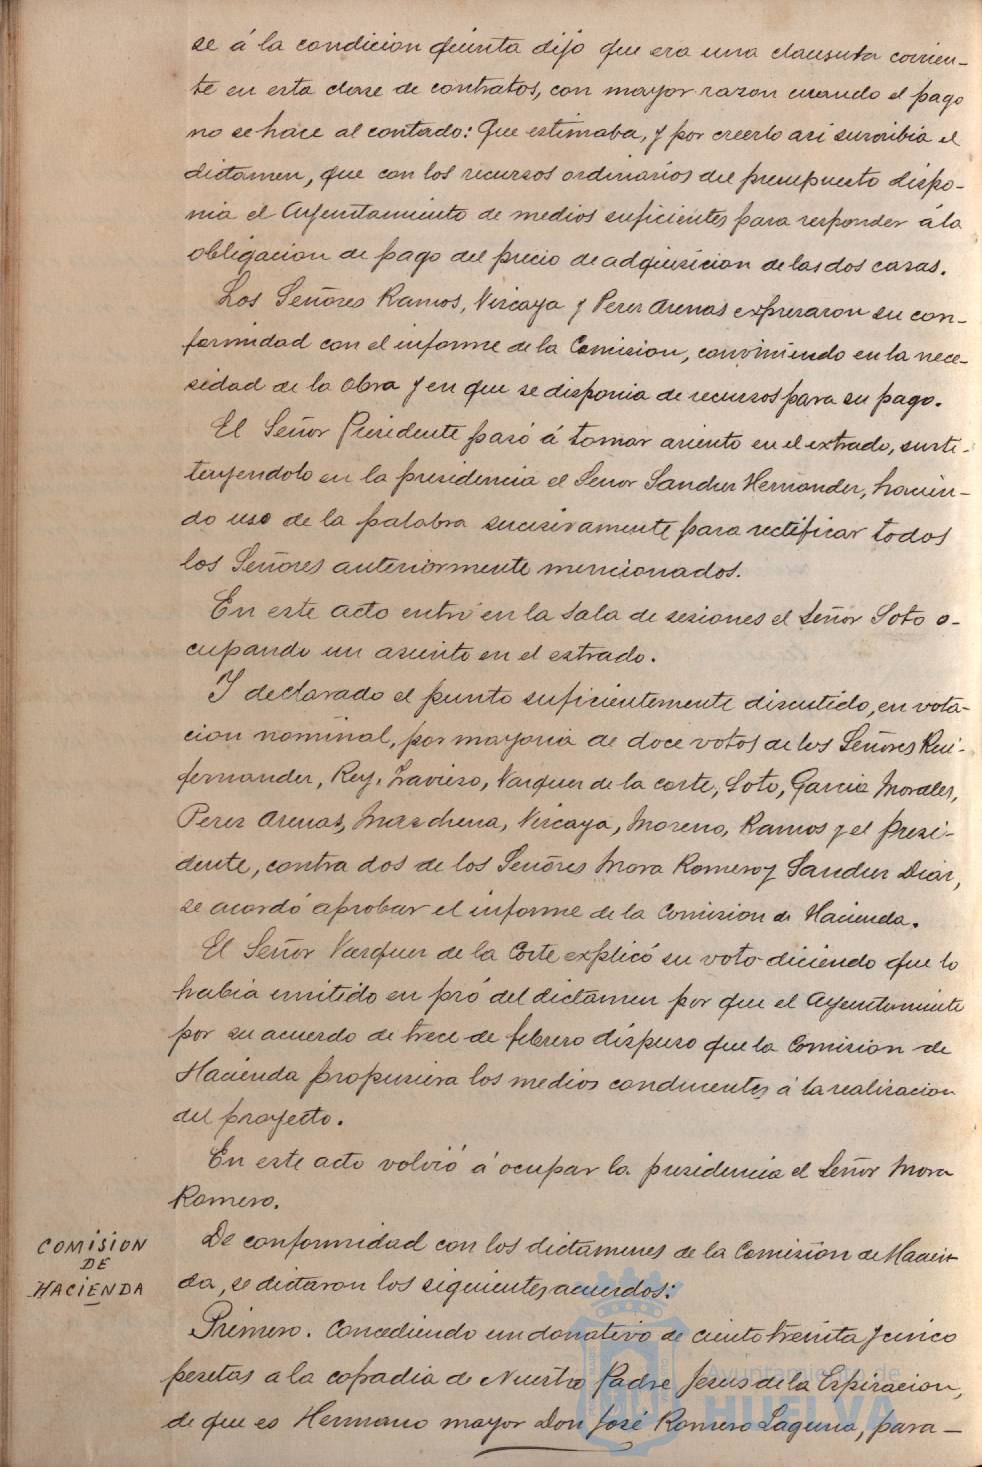 se á la condicion quinta dijo que era una clausula corrien-
te en esta clase de contratos, con mayor razon cuando el pago
no se hace al contado: Que estimaba, y por creerlo asi suscribia el
dictamen, que con los recursos ordinarios del presupuesto dispo-
nia el Ayuntamiento de medios suficientes para responder á la
obligacion de pago del precio de adquisicion de las dos casas.
Los Señores Ramos, Vizcaya y Perez Arenas expresaron su con-
formidad con el informe de la Comision, conviniendo en la nece-
sidad de la obra y en que se disponia de recursos para su pago.
El Señor Presidente pasó á tomar asiento en el extrado, susti-
tuyendolo en la presidencia el Señor Sanchez Hernandez, hacien-
do uso de la palabra sucesivamente para rectificar todos
los Señores anteriormente mencionados.
En este acto entró en la sala de sesiones el Señor Soto o-
cupando un asiento en el estrado.
Y declarado el punto suficientemente discutido, en vota-
cion nominal, por mayoria de doce votos de los Señores Rui-
fernandez, Rey, Travieso, Vazquez de la Corte, Soto, Garcia Morales,
Perez Arenas, Marchena, Vizcaya, Moreno, Ramos y el Presi-
dente, contra dos de los Señores Mora Romero y Sanchez Diaz,
se acordó aprobar el informe de la Comision de Hacienda.
El Señor Vazquez de la Corte explicó su voto diciendo que lo
habia emitido en pró del dictamen por que el Ayuntamiento
por su acuerdo de trece de febrero dispuso que la Comision de
Hacienda propusiera los medios conducentes á la realizacion
del proyecto.
En este acto volvió á ocupar la presidencia el Señor Mora
Romero.
COMISION
DE
HACIENDA
De conformidad con los dictamenes de la Comision de Hacien-
da, se dictaron los siguientes acuerdos:
Primero. Concediendo un donativo de ciento treinta y cinco
pesetas a la cofradia de Nuestro Padre Jesus de la Espiracion,
de que es Hermano mayor Don José Romero Laguna, para-
Ayuntamiento de
HUELVA